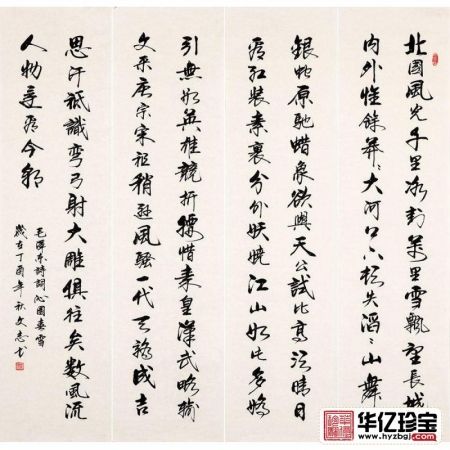 北國風光千里冰封萬里雪飄望長城
内外惟餘莽々大河上下頓失滔々山舞
銀蛇原馳蜡象欲與天公試比高須晴日
看紅裝素裹分外妖嬈江山如此多嬌
引無數英雄競折腰惜秦皇漢武略輸
文采唐宗宋祖稍遜風騷一代天驕成吉
思汗祗識彎弓射大雕俱往矣數風流
人物還看今朝
毛澤東詩詞沁園春雪
歲在丁酉年秋文志書
华亿珍宝
www.hyzbgj.com